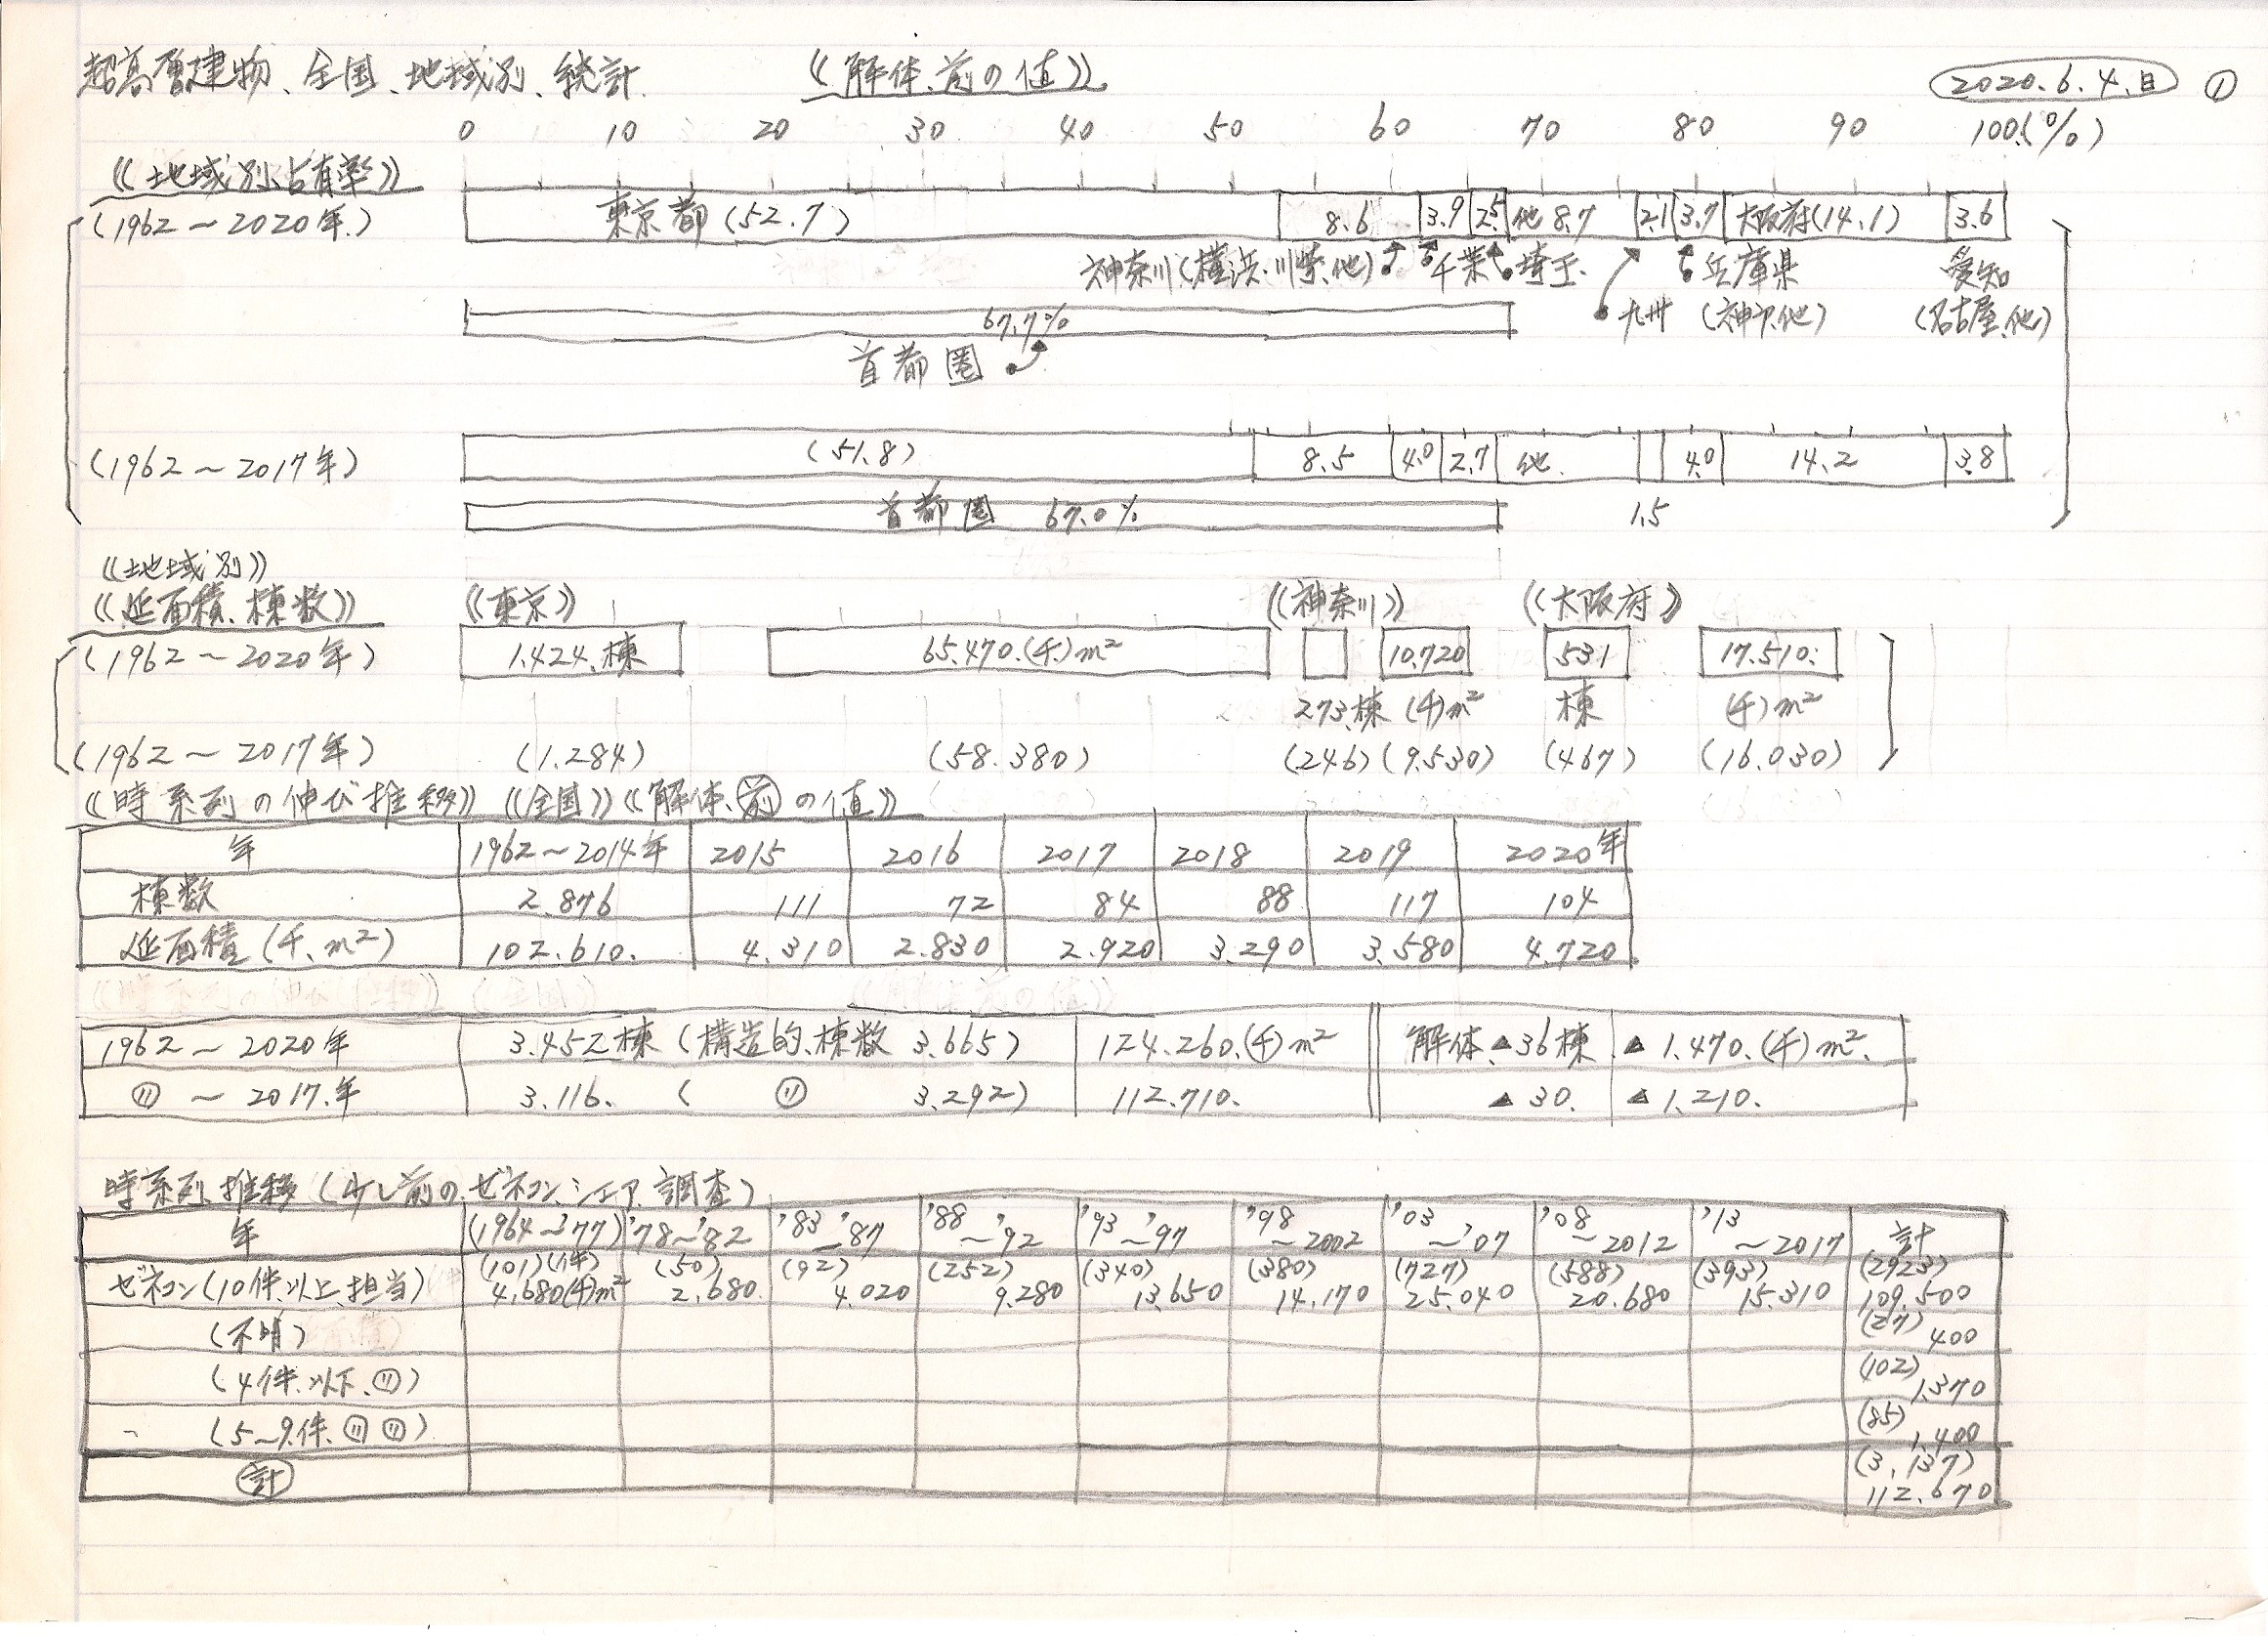 超高層建物、全国、地域別、統計 《解体、前の値》 2020.6.4.目 ①
0 10 20 30 40 50 60 70 80 90 100.(%)
《地域別、占有率》
(1962～2020年.) 東京都(52.7) 8.6 3.9 2.5 他8.7 2.1 3.7 大阪府(14.1) 3.6
神奈川(横浜.川崎.他) 千葉 埼玉. 兵庫県 愛知
67.7% 九州 (神戸.他) (名古屋.他)
首都圏
(1962～2017年) (51.8) 8.5 4.0 2.7 他. 4.0 14.2 3.8
首都圏 67.0% 1.5
《地域別》
《延面積、棟数》 《東京》 《神奈川》 《大阪府》
(1962～2020年) 1.424.棟 65.470.(千)m² 10.720 531 17.510.
273.棟 (千)m² 棟 (千)m²
(1962～2017年) (1.284) (58.380) (246) (9.530) (467) (16.030)
《時系列の伸び推移》 《全国》《解体、前の値》
年 1962～2014年 2015 2016 2017 2018 2019 2020年
棟数 2.876 111 72 84 88 117 104
延面積(千、m²) 102.610. 4.310 2.830 2.920 3.290 3.580 4.720
1962～2020年 3.452棟(構造的、棟数 3.665) 124.260.(千)m² 解体.▲36棟 ▲1.470.(千)m².
〃～2017.年 3.116. ( 〃 3.292) 112.710. ▲30. ▲1.210.
時系列、推移(少し前の、ゼネコン、シェア、調査)
年 (1964～'77) '78～'82 '83～'87 '88～'92 '93～'97 '98～2002 '03～'07 '08～2012 '13～2017 計
(101)(件) (50) (92) (252) (340) (380) (727) (588) (393) (2923)
ゼネコン(10件以上、担当) 4.680(千)m² 2.680. 4.020 9.280 13.650 14.170 25.040 20.680 15.310 109.500
(不明) (27) 400
(4件.以下、〃) (102) 1.370
(5～9.件.〃〃) (85) 1.400
計 (3.137)
112.670